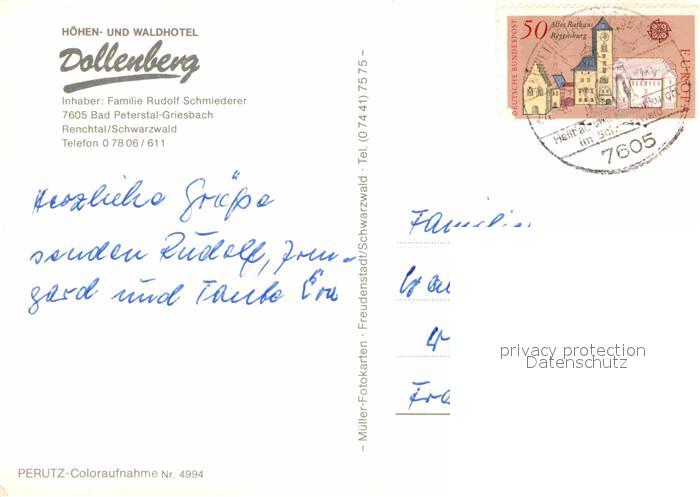 HÖHEN- UND WALDHOTEL
Dollenberg
Inhaber: Familie Rudolf Schmiederer
7605 Bad Peterstal-Griesbach
Renchtal/Schwarzwald
Telefon 0 78 06 / 611
Herzliche Grüße
senden Rudolf, Irm-
gard und Tante Eva
PERUTZ-Coloraufnahme Nr. 4994
– Müller-Fotokarten · Freudenstadt/Schwarzwald · Tel. (0 74 41) 75 75 –
50 Altes Rathaus
Regensburg
DEUTSCHE BUNDESPOST
EUROPA
7605
Familie
privacy protection
Datenschutz